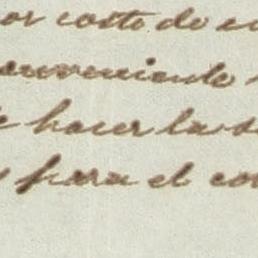 or costo de
onveniente
hacer la
para el co